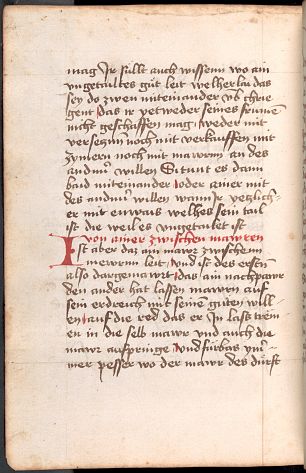 mag Ir sullt auch wissenn wo ain
ungetailtes gut leit welherlai das
sey do zwen miteinander vmb chrie
gent das ir yetweder seines frumē
nicht geschaffen mag weder mit
versetzn noch mit verkauffen mit
zymern noch mit mawrn an des
andnꝰ willen Si tunt es dann
baid miteinander oder ainer mit
des andnꝰ willen wann Ir yetzlich
er mit etwaus welhes sein tail
ist die weil es ungetailt ist
von ainer zwischen mawren
Ist aber daz ain mawr zwischenn
mewrern leit und ist des ersten
also dargemawrt das ain nachpawr
den ander hat lassen mawrn auf
sein erdreich mit seinē guten will
len auf die red das er In lass träm
en in die selb mawr und auch die
mawr aufpringe und fürbas ym̄
mer pesser wo der mawr des dürft